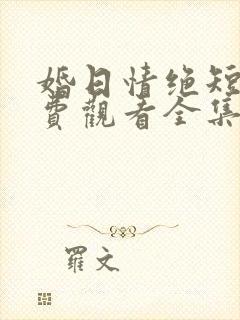 婚日情绝短
费觀看全集
羅文